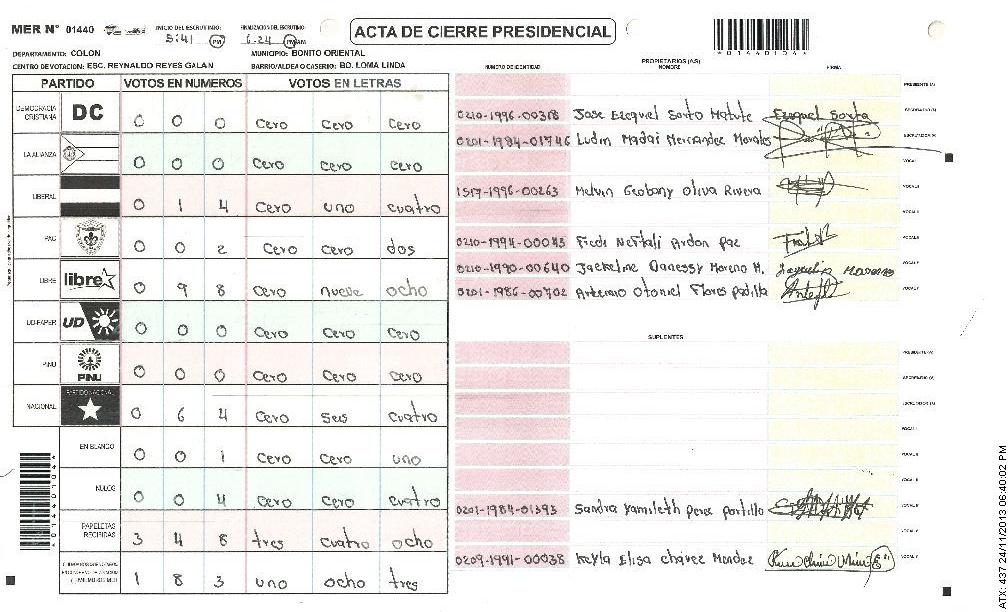 MER N° 01440 INICIO DEL ESCRUTINIO: 5:41 PM FINALIZACION DEL ESCRUTINIO: 6:24 PM AM
ACTA DE CIERRE PRESIDENCIAL
*01440104*
DEPARTAMENTO: COLON MUNICIPIO: BONITO ORIENTAL
CENTRO DE VOTACION: ESC. REYNALDO REYES GALAN BARRIO/ALDEA O CASERIO: BO. LOMA LINDA
PARTIDO VOTOS EN NUMEROS VOTOS EN LETRAS
DEMOCRACIA CRISTIANA DC 0 0 0 Cero Cero Cero
LA ALIANZA 0 0 0 Cero Cero Cero
LIBERAL 0 1 4 Cero uno cuatro
PAC 0 0 2 Cero Cero dos
LIBRE libre 0 9 8 Cero nueve ocho
UD-FAPER UD 0 0 0 Cero Cero Cero
PINU PINU 0 0 0 Cero Cero Cero
NACIONAL PARTIDO NACIONAL 0 6 4 Cero seis cuatro
EN BLANCO 0 0 1 Cero Cero uno
NULOS 0 0 4 Cero Cero cuatro
PAPELETAS RECIBIDAS 3 4 8 tres cuatro ocho
1 8 3 uno ocho tres
PROPIETARIOS (AS)
NUMERO DE IDENTIDAD NOMBRE FIRMA
PRESIDENTE (A)
0210-1996-00318 Jose Ezequel Sorto Matute Ezequel Sorto SECRETARIO (A)
0201-1984-01746 Ludin Madai Hernandez Morales ESCRUTADOR (A)
VOCAL I
1517-1996-00263 Melvin Geobany Oliva Rivera VOCAL II
VOCAL III
0210-1994-00043 Neftali Ardon paz
0210-1990-00640 Jackeline Danessy Moreno M.
0201-1986-00702 Artemio Otoniel Flores padilla
SUPLENTES
PRESIDENTE (A)
SECRETARIO (A)
ESCRUTADOR (A)
VOCAL I
0201-1984-01393 Sandra Yamileth perez portillo
0209-1991-00038 Keyla Elisa chávez Mendez
ATX: 437.24/11/2013 06:40:02 PM